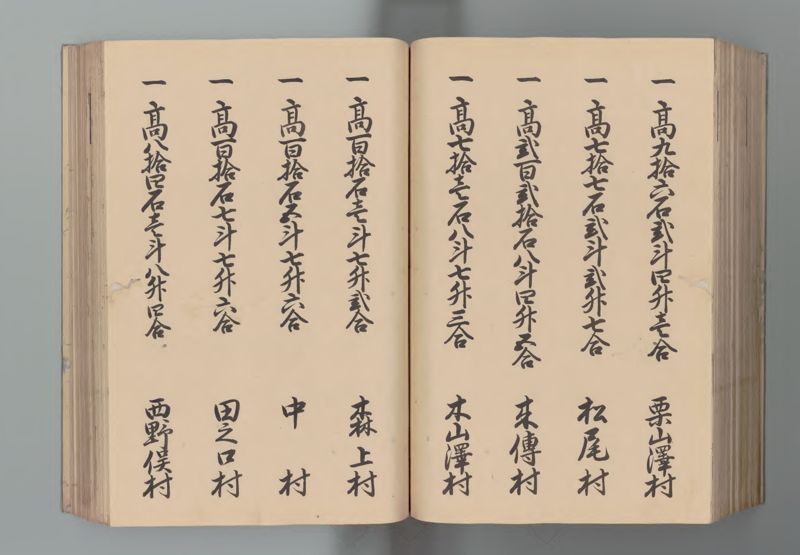 一 高九拾六石弐斗四升壱合 栗山澤村
一 高七拾七石弐斗弐升七合 松尾村
一 高弐百弐拾石八斗四升五合 来傳村
一 高七拾壱石八斗七升三合 木山澤村
一 高百拾石壱斗七升弐合 森上村
一 高百拾石五斗七升六合 中村
一 高百拾石七斗七升六合 田之口村
一 高八拾四石壱斗八升四合 西野俣村